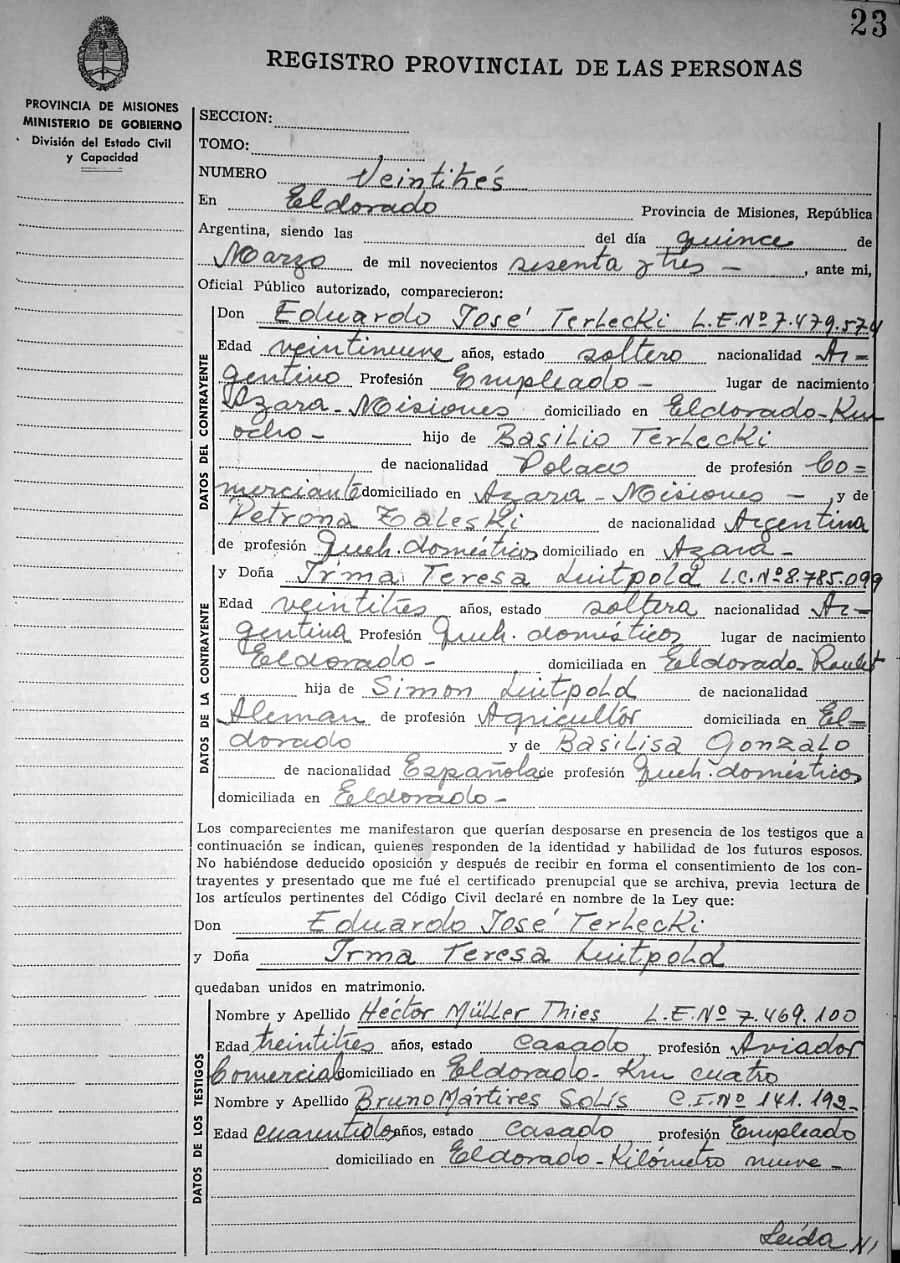 23
REGISTRO PROVINCIAL DE LAS PERSONAS
PROVINCIA DE MISIONES
MINISTERIO DE GOBIERNO
División del Estado Civil
y Capacidad
SECCION:
TOMO:
NUMERO Veintitrés
En Eldorado Provincia de Misiones, República
Argentina, siendo las del día quince de
Marzo de mil novecientos sesenta y tres - , ante mi,
Oficial Público autorizado, comparecieron:
DATOS DEL CONTRAYENTE
Don Eduardo José Terlecki L.E.Nº 7.479.574
Edad veintinueve años, estado soltero nacionalidad Ar=
gentino Profesión Empleado - lugar de nacimiento
Azara - Misiones domiciliado en Eldorado - Km
ocho - hijo de Basilio Terlecki
de nacionalidad Polaco de profesión Co=
merciante domiciliado en Azara - Misiones - , y de
Petrona Zaleski de nacionalidad Argentina
de profesión Queh. domésticos domiciliado en Azara -
DATOS DE LA CONTRAYENTE
y Doña Irma Teresa Luitpold L.C.Nº 8.785.099
Edad veintitres años, estado soltera nacionalidad Ar=
gentina Profesión Queh. domésticos lugar de nacimiento
Eldorado - domiciliada en Eldorado -
hija de Simon Luitpold de nacionalidad
Aleman de profesión Agricultór domiciliada en El=
dorado y de Basilisa Gonzalo
de nacionalidad Española de profesión Queh. domésticos
domiciliada en Eldorado -
Los comparecientes me manifestaron que querían desposarse en presencia de los testigos que a
continuación se indican, quienes responden de la identidad y habilidad de los futuros esposos.
No habiéndose deducido oposición y después de recibir en forma el consentimiento de los con-
trayentes y presentado que me fué el certificado prenupcial que se archiva, previa lectura de
los artículos pertinentes del Código Civil declaré en nombre de la Ley que:
Don Eduardo José Terlecki
y Doña Irma Teresa Luitpold
quedaban unidos en matrimonio.
DATOS DE LOS TESTIGOS
Nombre y Apellido Héctor Müller Thies L.E.Nº 7.469.100
Edad treintitres años, estado casado profesión Aviador
Comercial domiciliado en Eldorado - Km cuatro
Nombre y Apellido Bruno Mártires Solís C.I.Nº 141.192-
Edad cuarentidos años, estado casado profesión Empleado
domiciliado en Eldorado - Kilómetro nueve -
Leída